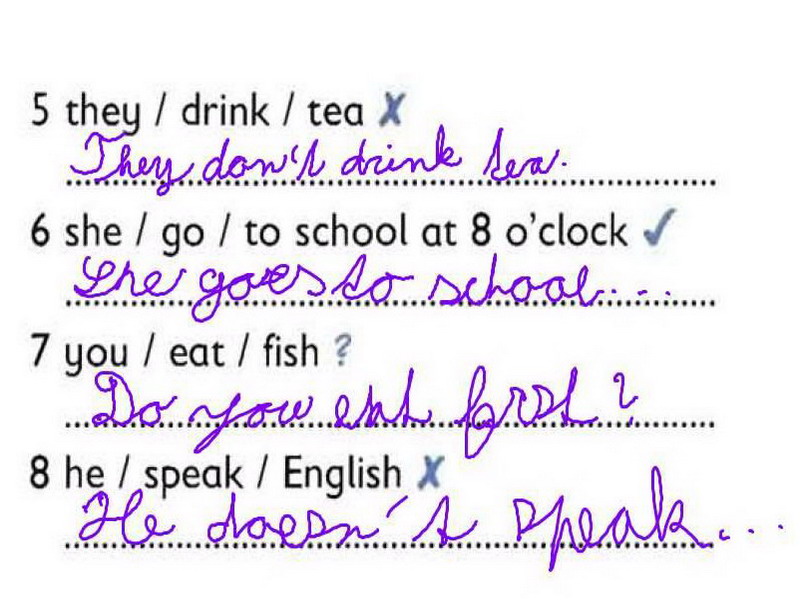 5 they / drink / tea ✗
They don't drink tea.
6 she / go / to school at 8 o'clock ✓
She goes to school...
7 you / eat / fish ?
Do you eat first?
8 he / speak / English ✗
He doesn't speak...